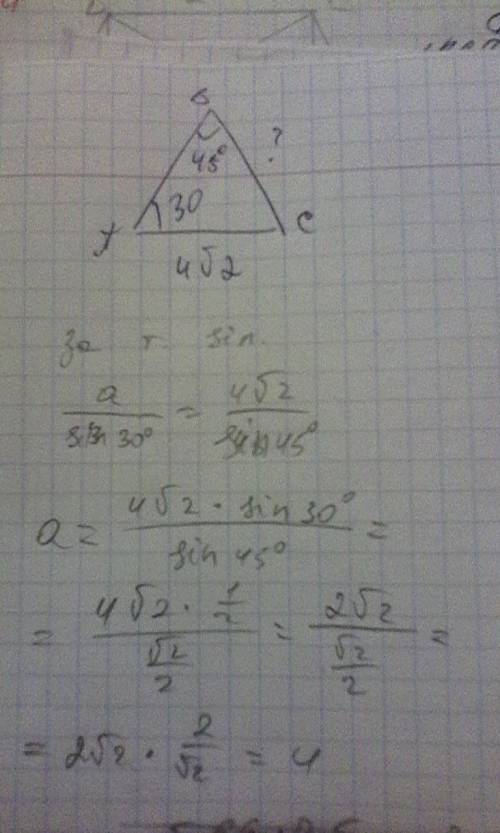 B
45° ?
A 30 C
4√2
За т. sin.
a/sin 30° = 4√2/sin 45°
a = 4√2 · sin 30°/sin 45° =
= 4√2 · 1/2/√2/2 = 2√2/√2/2 =
= 2√2 · 2/√2 = 4